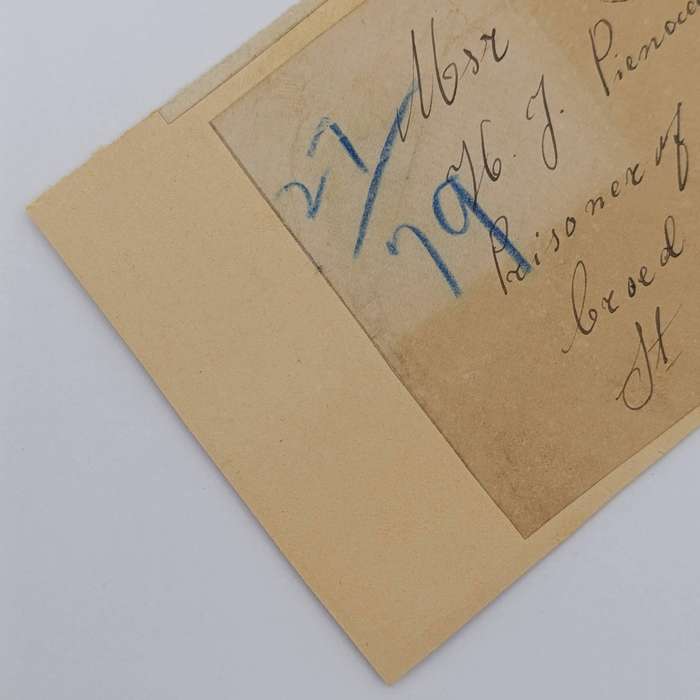 27/79
Msr
H. J. Pienaa
Prisoner of
broed
St